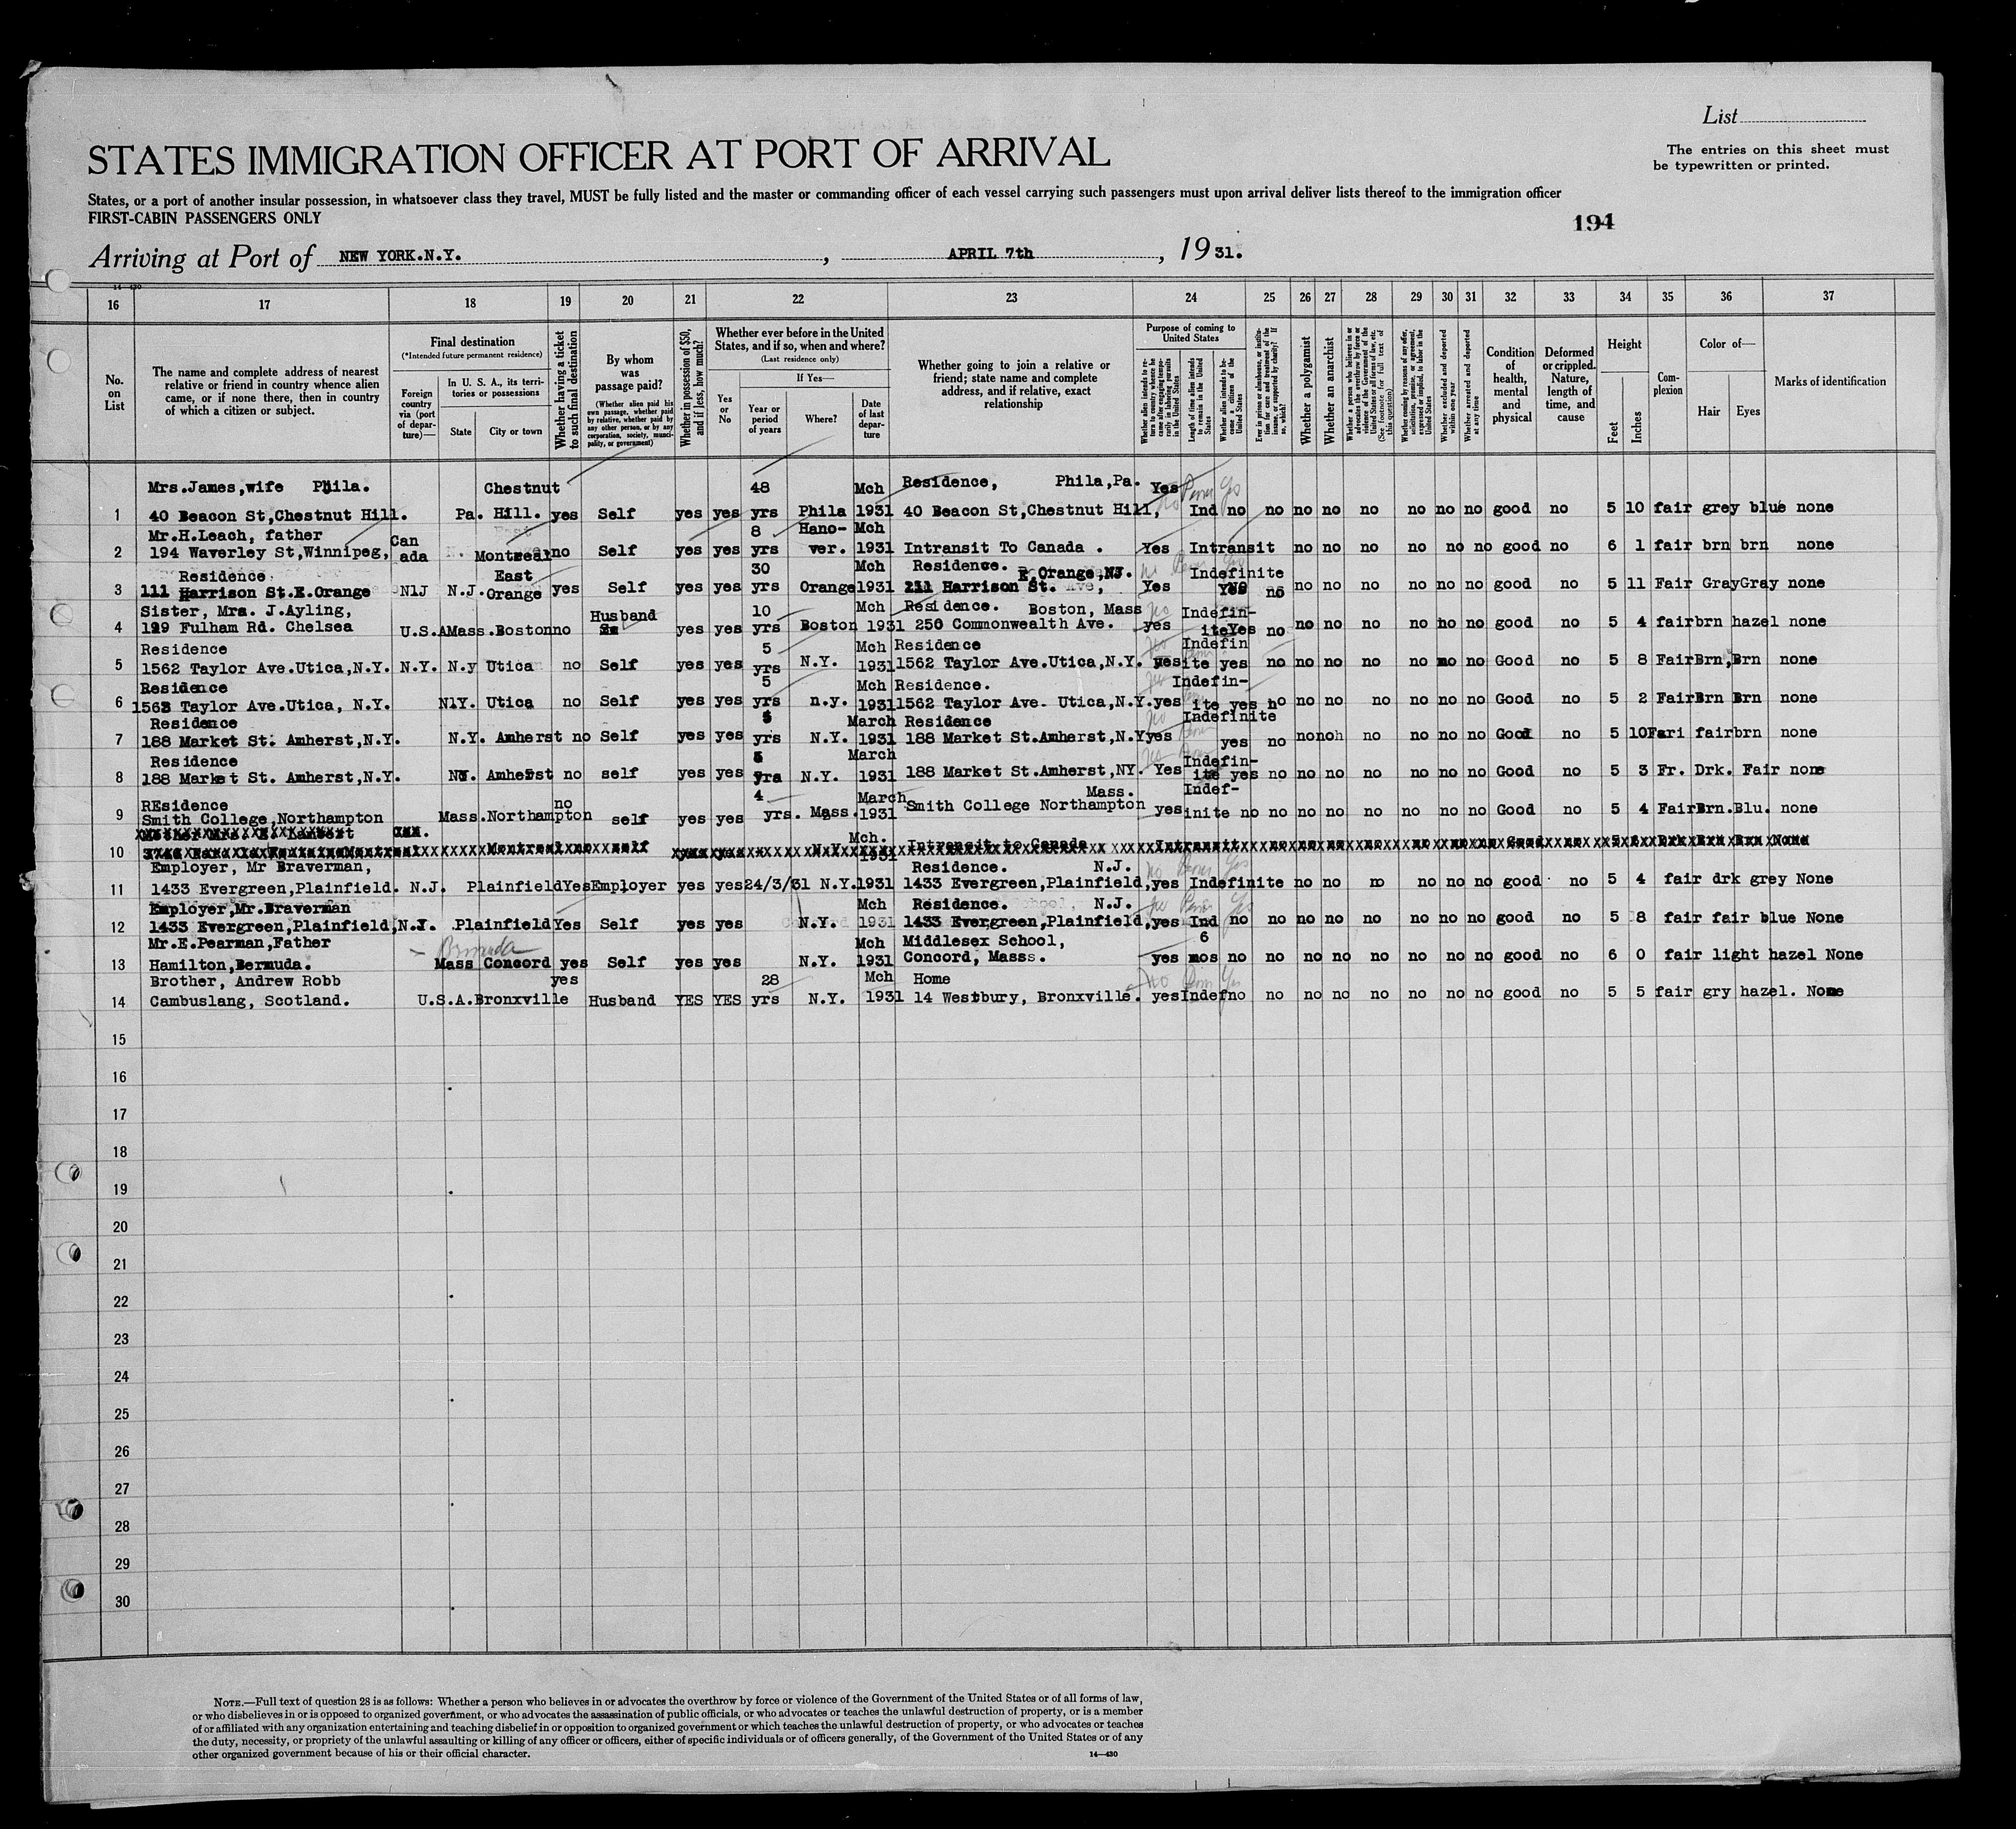 List
STATES IMMIGRATION OFFICER AT PORT OF ARRIVAL
The entries on this sheet must
be typewritten or printed.
States, or a port of another insular possession, in whatsoever class they travel, MUST be fully listed and the master or commanding officer of each vessel carrying such passengers must upon arrival deliver lists thereof to the immigration officer
FIRST-CABIN PASSENGERS ONLY
194
Arriving at Port of NEW YORK.N.Y. , APRIL 7th , 19 31.
14-430
16 17 18 19 20 21 22 23 24 25 26 27 28 29 30 31 32 33 34 35 36 37
No. on List
The name and complete address of nearest relative or friend in country whence alien came, or if none there, then in country of which a citizen or subject.
Final destination
(*Intended future permanent residence)
Foreign country via (port of departure)—
In U. S. A., its territories or possessions
State
City or town
Whether having a ticket to such final destination
By whom was passage paid?
(Whether alien paid his own passage, whether paid by relative, whether paid by any other person, or by any corporation, society, municipality, or government)
Whether in possession of $50, and if less, how much?
Whether ever before in the United States, and if so, when and where?
(Last residence only)
Yes or No
If Yes—
Year or period of years
Where?
Date of last departure
Whether going to join a relative or friend; state name and complete address, and if relative, exact relationship
Purpose of coming to United States
Whether alien intends to return to country whence he came after engaging temporarily in laboring pursuits in the United States
Length of time alien intends to remain in the United States
Whether alien intends to become a citizen of the United States
Ever in prison or almshouse, or institution for care and treatment of the insane, or supported by charity? If so, which?
Whether a polygamist
Whether an anarchist
Whether a person who believes in or advocates the overthrow by force or violence of the Government of the United States or all forms of law, etc. (See footnote for full text of this question)
Whether coming by reasons of any offer, solicitation, promise, or agreement, expressed or implied, to labor in the United States
Whether excluded and deported within one year
Whether arrested and deported at any time
Condition of health, mental and physical
Deformed or crippled. Nature, length of time, and cause
Height
Feet
Inches
Complexion
Color of—
Hair
Eyes
Marks of identification
Mrs.James,wife Phila. Chestnut 48 Mch Residence, Phila,Pa. Yes
1 40 Beacon St,Chestnut Hill. Pa. Hill. yes Self yes yes yrs Phila 1931 40 Beacon St,Chestnut Hill, Ind no no no no no no no no good no 5 10 fair grey blue none
Mr.H.Leach, father Can 8 Hano- Mch
2 194 Waverley St,Winnipeg, ada Montreal no Self yes yes yrs ver. 1931 Intransit To Canada . Yes Intransit no no no no no no good no 6 1 fair brn brn none
Residence East 30 Mch Residence. E.Orange,NJ. Indefinite
3 111 Harrison St.E.Orange N1J N.J. Orange yes Self yes yes yrs Orange 1931 111 Harrison St. Yes no no no no no no no good no 5 11 Fair Gray Gray none
Sister, Mrs. J.Ayling, Husband 10 Mch Residence. Boston, Mass Indefin-
4 129 Fulham Rd. Chelsea U.S.A Mass.Boston no yes yes yrs Boston 1931 250 Commonwealth Ave. yes ite Yes no no no no no no no good no 5 4 fair brn hazel none
Residence 5 Mch Residence Indefin
5 1562 Taylor Ave.Utica,N.Y. N.Y. N.y Utica no Self yes yes yrs N.Y. 1931 1562 Taylor Ave.Utica,N.Y. yes ite yes no no no no no no no Good no 5 8 Fair Brn,Brn none
Residence 5 Mch Residence. Indefin-
6 1562 Taylor Ave.Utica, N.Y. N1Y. Utica no Self yes yes yrs n.y. 1931 1562 Taylor Ave. Utica,N.Y. yes ite yes no no no no no no no Good no 5 2 Fair Brn Brn none
Residence 5 March Residence Indefinite
7 188 Market St. Amherst,N.Y. N.Y. Amherst no Self yes yes yrs N.Y. 1931 188 Market St.Amherst,N.Y yes yes no no noh no no no no Good no 5 10 Fari fair brn none
Residence 5 March Indefin-
8 188 Market St. Amherst,N.Y. NY. Amherst no self yes yes yra N.Y. 1931 188 Market St.Amherst,NY. Yes ite yes no no no no no no no Good no 5 3 Fr. Drk. Fair none
REsidence no 4 March Mass. Indef-
9 Smith College,Northampton Mass.Northampton self yes yes yrs. Mass. 1931 Smith College Northampton yes inite no no no no no no no no Good no 5 4 Fair Brn.Blu. none
Mother Mrs. E. Lambert Mch.
10 Montreal no self yes yes N.Y. 1931 Intransit to Canada Intransit no no no no no no no Good no 5 Drk Brn Brn None
Employer, Mr Braverman, Residence. N.J.
11 1433 Evergreen,Plainfield. N.J. Plainfield Yes Employer yes yes 24/3/31 N.Y. 1931 1433 Evergreen,Plainfield, yes Indefinite no no no no no no good no 5 4 fair drk grey None
Employer,Mr.Braverman Mch Residence. N.J.
12 1433 Evergreen,Plainfield,N.J. Plainfield Yes Self yes yes N.Y. 1931 1433 Evergreen,Plainfield, yes Ind no no no no no no no no good no 5 8 fair fair blue None
Mr.E.Pearman,Father Bermuda Mch Middlesex School, 6
13 Hamilton,Bermuda. Mass Concord yes Self yes yes N.Y. 1931 Concord, Masss. yes mos no no no no no no no no good no 6 0 fair light hazel None
Brother, Andrew Robb yes 28 Mch Home
14 Cambuslang, Scotland. U.S.A.Bronxville Husband YES YES yrs N.Y. 1931 14 Westbury, Bronxville. yes Indef no no no no no no no no good no 5 5 fair gry hazel. None
15
16
17
18
19
20
21
22
23
24
25
26
27
28
29
30
NOTE.—Full text of question 28 is as follows: Whether a person who believes in or advocates the overthrow by force or violence of the Government of the United States or of all forms of law,
or who disbelieves in or is opposed to organized government, or who advocates the assassination of public officials, or who advocates or teaches the unlawful destruction of property, or is a member
of or affiliated with any organization entertaining and teaching disbelief in or opposition to organized government or which teaches the unlawful destruction of property, or who advocates or teaches
the duty, necessity, or propriety of the unlawful assaulting or killing of any officer or officers, either of specific individuals or of officers generally, of the Government of the United States or of any
other organized government because of his or their official character.
14—430